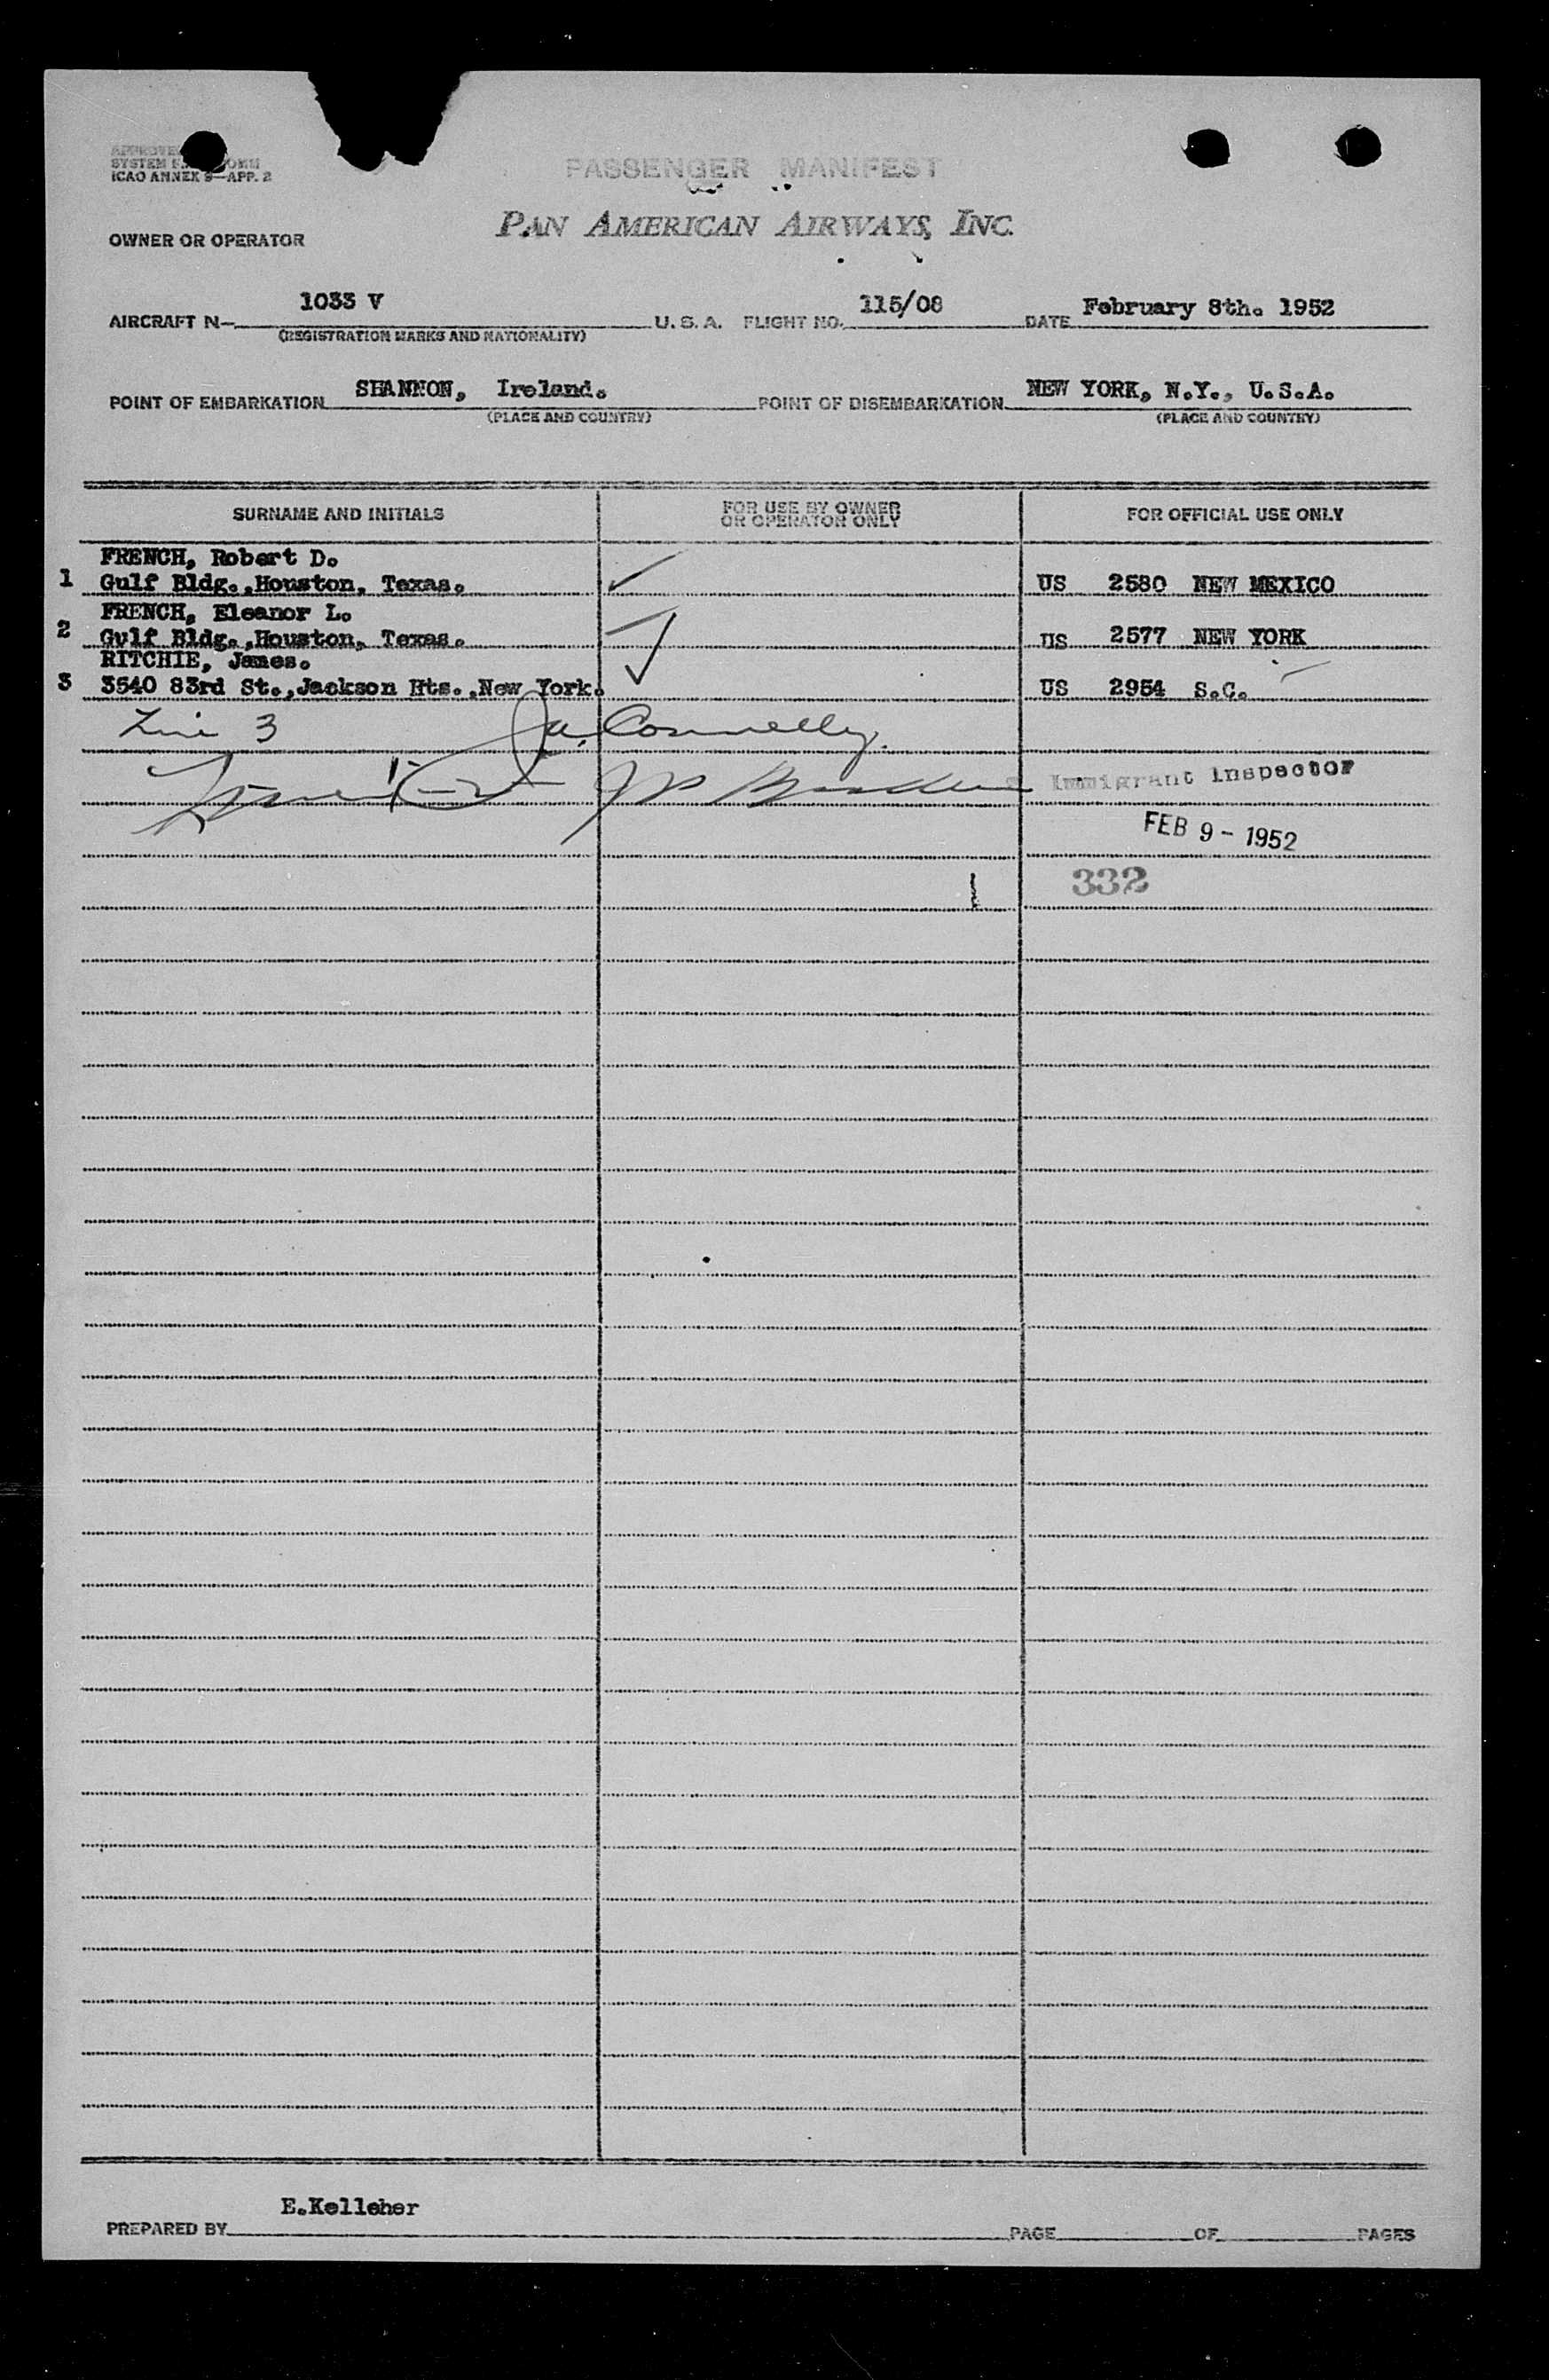 SYSTEM
ICAO ANNEX 9—APP. 2
PASSENGER MANIFEST
PAN AMERICAN AIRWAYS, INC.
OWNER OR OPERATOR
AIRCRAFT N— 1033 V U. S. A. FLIGHT NO. 115/08 DATE February 8th. 1952
(REGISTRATION MARKS AND NATIONALITY)
POINT OF EMBARKATION SHANNON, Ireland. POINT OF DISEMBARKATION NEW YORK, N.Y., U.S.A.
(PLACE AND COUNTRY) (PLACE AND COUNTRY)
SURNAME AND INITIALS FOR USE BY OWNER OR OPERATOR ONLY FOR OFFICIAL USE ONLY
FRENCH, Robert D.
1 Gulf Bldg.,Houston, Texas. US 2580 NEW MEXICO
FRENCH, Eleanor L.
2 Gulf Bldg.,Houston, Texas. US 2577 NEW YORK
RITCHIE, James.
3 3540 83rd St.,Jackson Hts.,New York. US 2954 S.C.
Line 3 Ja. Connelly.
Immigrant Inspector
FEB 9 - 1952
332
E.Kelleher
PREPARED BY PAGE OF PAGES